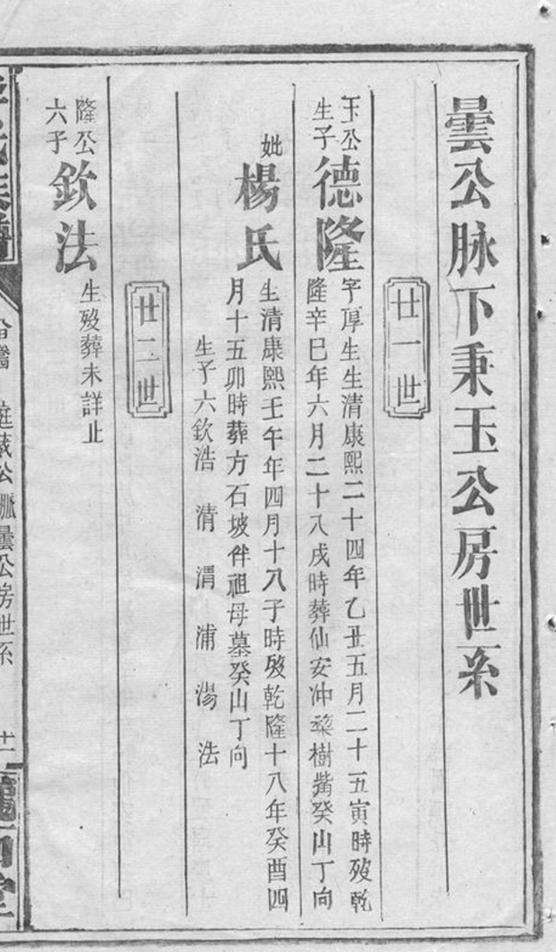 曇公脉下秉玉公房世系
廿一世
玉公
生子
德隆
字厚生生清康熙二十四年乙丑五月二十五寅時歿乾
隆辛巳年六月二十八戌時葬仙安冲桬樹嘴癸山丁向
妣
楊氏
生清康熙壬午年四月十八子時歿乾隆十八年癸酉四
月十五卯時葬方石坡伴祖母墓癸山丁向
生子六欽浩 清 渭 浦 湯 法
廿二世
隆公
六子
欽法
生歿葬未詳止
庭蔵公 曇公房世系
十一